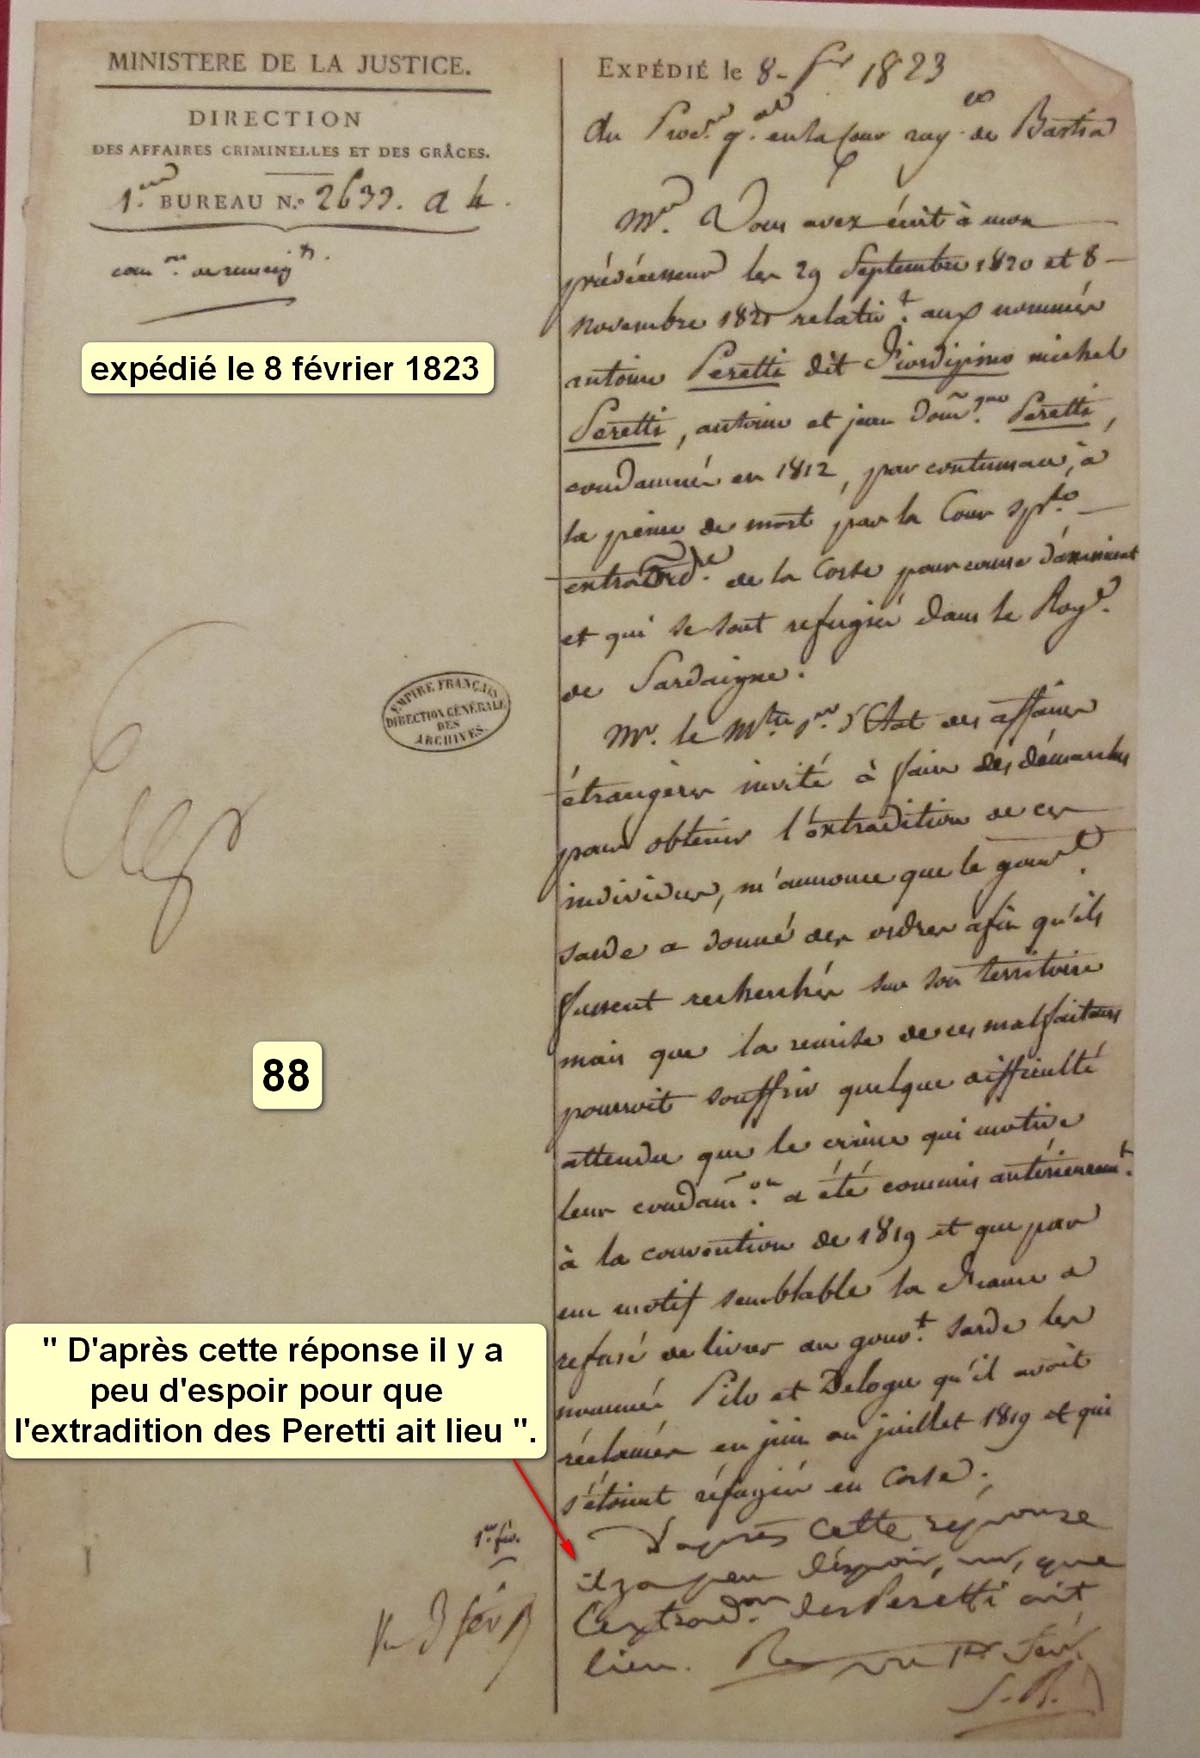 MINISTERE DE LA JUSTICE.
DIRECTION
DES AFFAIRES CRIMINELLES ET DES GRÂCES.
1.er BUREAU N.º 2633. a 4.
expédié le 8 février 1823
EMPIRE FRANÇAIS
DIRECTION GÉNÉRALE
DES
ARCHIVES.
88
" D'après cette réponse il y a
peu d'espoir pour que
l'extradition des Peretti ait lieu ".
EXPÉDIÉ le 8 - fer 1823
du Proc.r g.al en la Cour roy.le de Bastia
Mr. Vous avez écrit à mon
prédécesseur les 29 Septembre 1820 et 8
novembre 1821 relativ.t aux nommés
antoine Peretti dit Fiordipino michel
Peretti, antoine et jean Dom.que Peretti,
condamnés en 1812, par contumace, à
la peine de mort par la Cour sp.le
extraord.re de la Corse pour cause d'assassinat
et qui se sont refugiés dans le Roy.e
de Sardaigne.
Mr. le Mtre S.re d'Etat des affaires
étrangères invité à faire des démarches
pour obtenir l'extradition de ces
individus, m'annonce que le gouv.t
sarde a donné des ordres afin qu'ils
fussent recherchés sur son territoire
mais que la remise de ces malfaiteurs
pourroit souffrir quelque difficulté
attendu que le crime qui motive
leur condam.on a été commis antérieurem.t
à la convention de 1819 et que par
un motif semblable la France a
refusé de livrer au gouv.t sarde les
nommés Pilo et Delogu qu'il avoit
réclamés en juin ou juillet 1819 et qui
s'étoient réfugiés en Corse.
D'après cette réponse
il y a peu d'espoir, mr, que
l'extrad.on des Peretti ait
lieu.
1er fév.